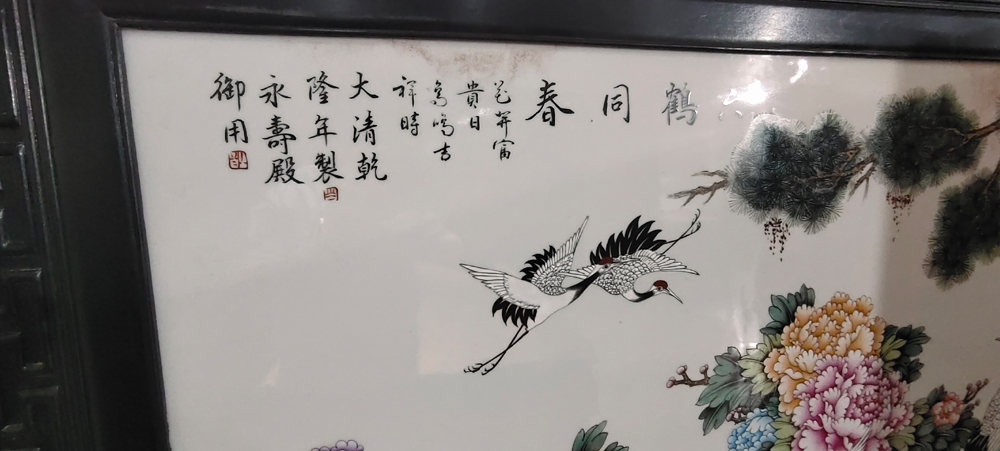 鶴同春
花开富
貴日
鳥鳴吉
祥時
大清乾
隆年製
永壽殿
御用